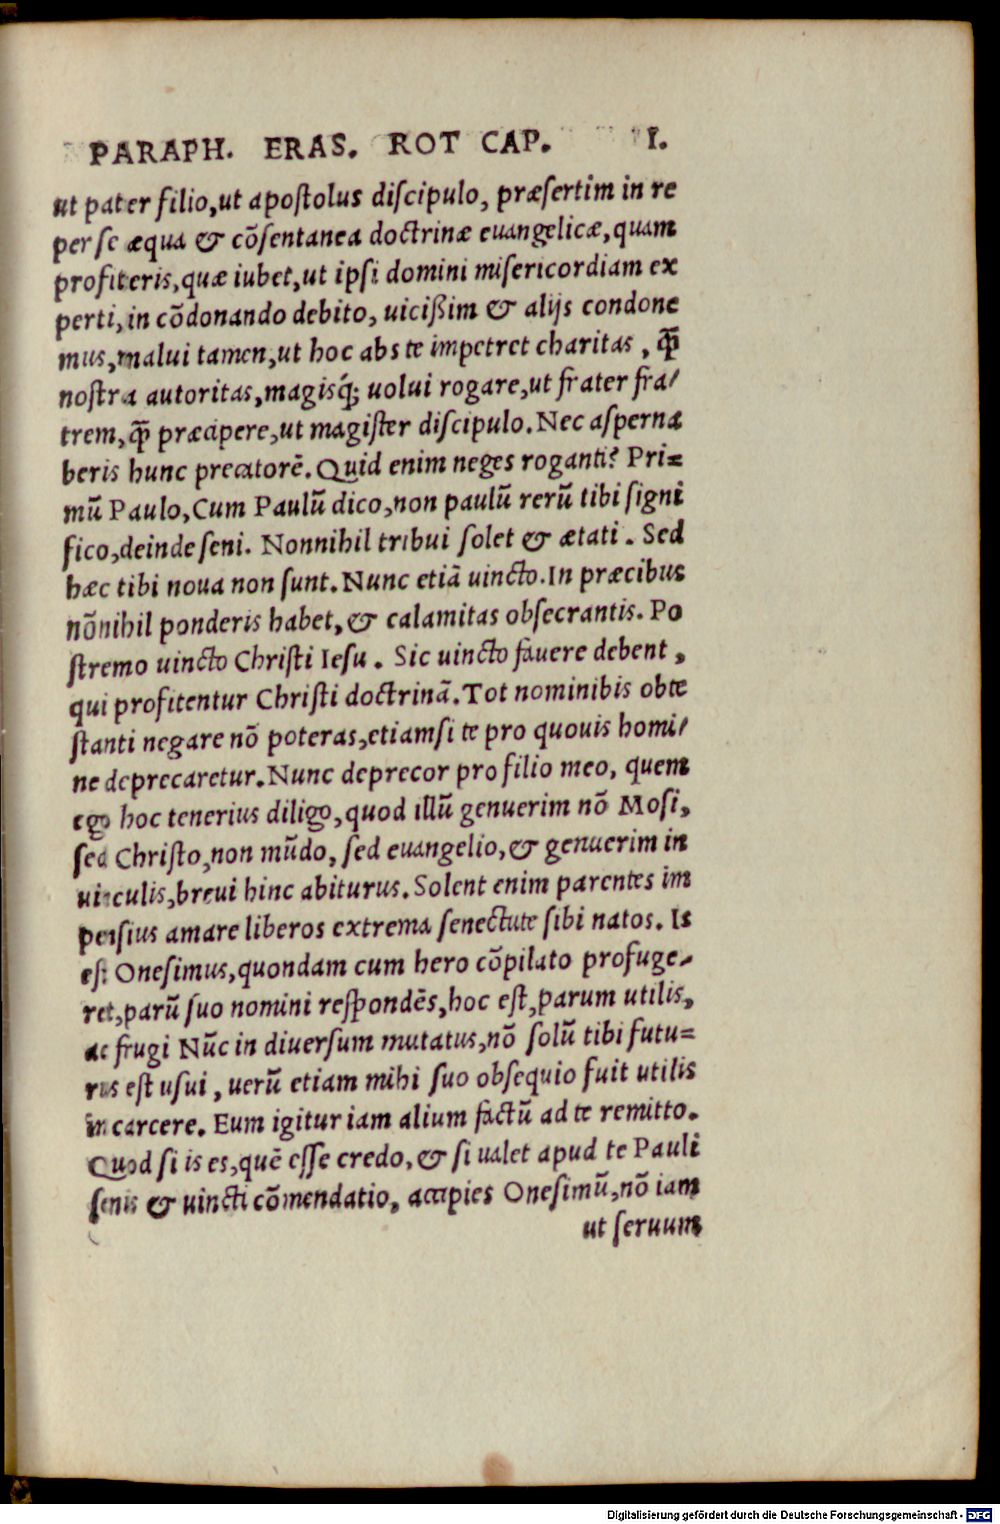 PARAPH. ERAS. ROT CAP. I.
ut pater filio, ut apostolus discipulo, præsertim in re
per se æqua & cõsentanea doctrinæ euangelicæ, quam
profiteris, quæ iubet, ut ipsi domini misericordiam ex
perti, in cõdonando debito, uicißim & alijs condone
mus, malui tamen, ut hoc abs te impetret charitas, q̃
nostra autoritas, magisq́; uolui rogare, ut frater fra/
trem, q̃ præcipere, ut magister discipulo. Nec asperna
beris hunc precatorẽ. Quid enim neges roganti? Pri=
mũ Paulo, Cum Paulũ dico, non paulũ rerũ tibi signi
fico, deinde seni. Nonnihil tribui solet & ætati. Sed
hæc tibi noua non sunt. Nunc etiã uincto. In præcibus
nõnihil ponderis habet, & calamitas obsecrantis. Po
stremo uincto Christi Iesu. Sic uincto fauere debent,
qui profitentur Christi doctrinã. Tot nominibis obte
stanti negare nõ poteras, etiamsi te pro quouis homi/
ne deprecaretur. Nunc deprecor pro filio meo, quem
ego hoc tenerius diligo, quod illũ genuerim nõ Mosi,
sed Christo, non mũdo, sed euangelio, & genuerim in
uinculis, breui hinc abiturus. Solent enim parentes im
pensius amare liberos extrema senectute sibi natos. Is
est Onesimus, quondam cum hero cõpilato profuge/
ret, parũ suo nomini respondẽs, hoc est, parum utilis,
ac frugi Nũc in diuersum mutatus, nõ solũ tibi futu=
rus est usui, uerũ etiam mihi suo obsequio fuit utilis
in carcere. Eum igitur iam alium factũ ad te remitto.
Quod si is es, quẽ esse credo, & si ualet apud te Pauli
senis & uincti cõmendatio, accipies Onesimũ, nõ iam
ut seruum
Digitalisierung gefördert durch die Deutsche Forschungsgemeinschaft - DFG